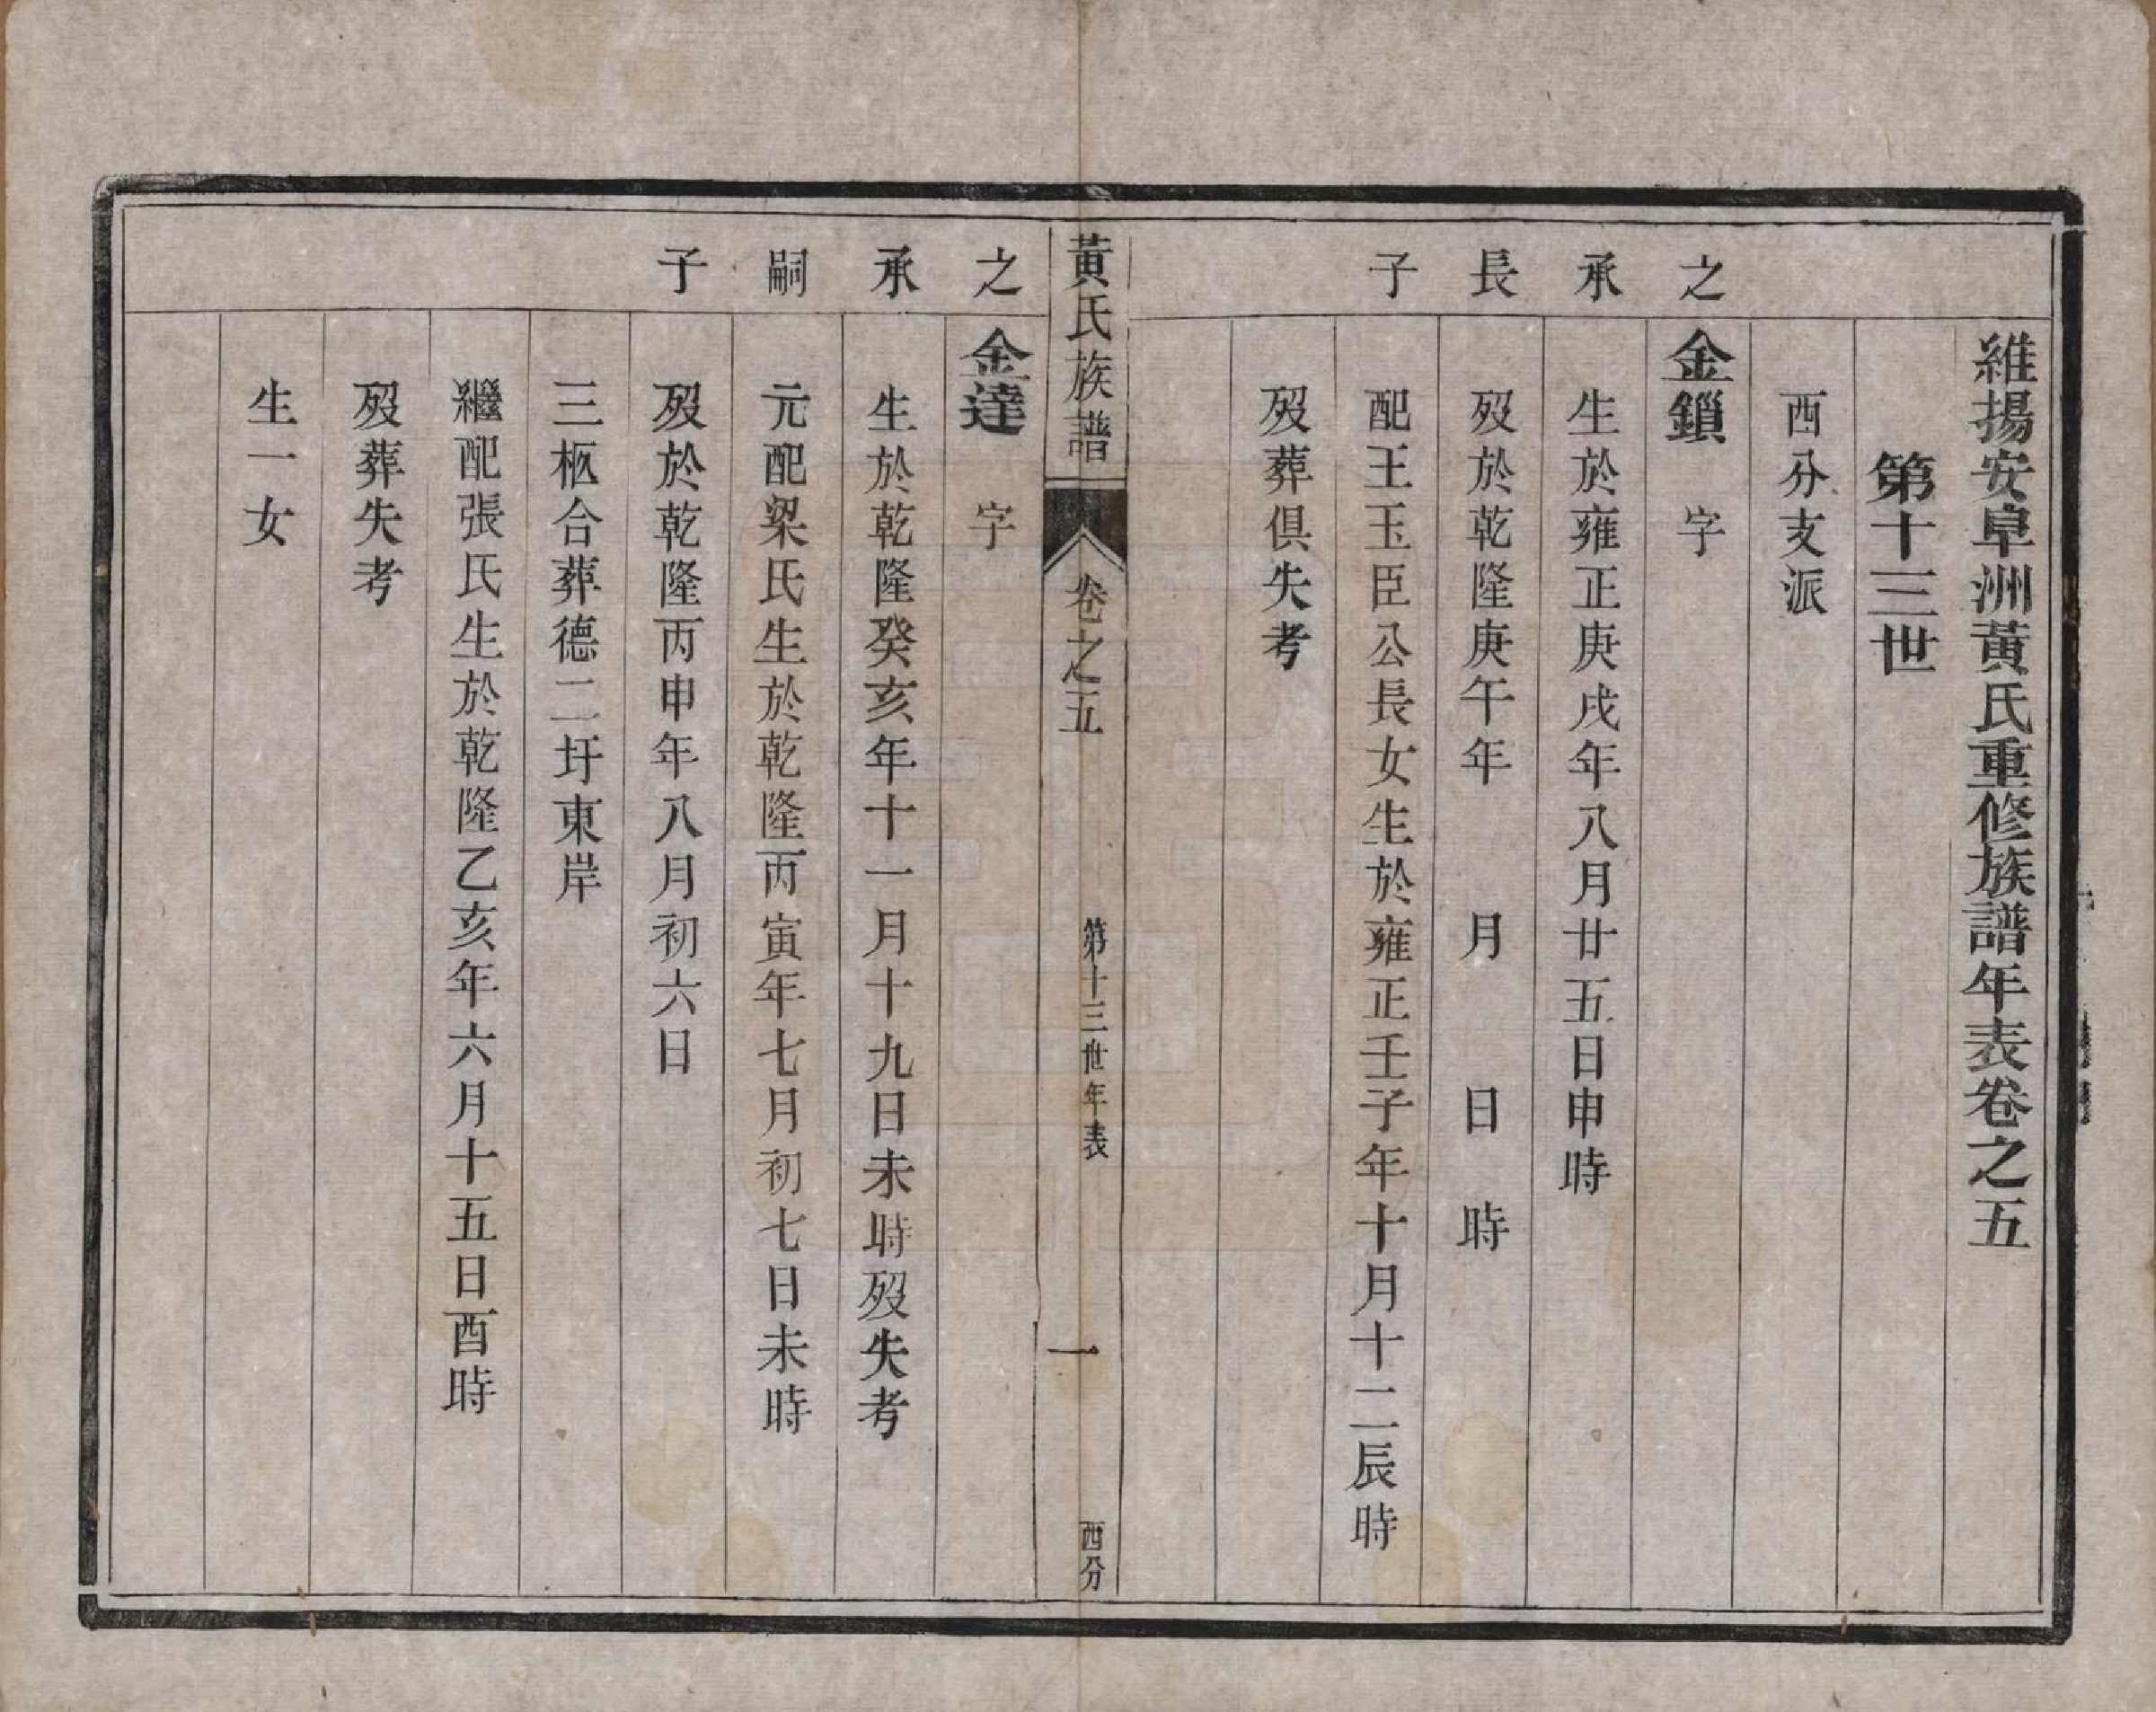 維揚安阜洲黃氏重修族譜年表卷之五
第十三世
西分支派
之承長子
金鎖　字
生於雍正庚戌年八月廿五日申時
歿於乾隆庚午年　月　日　時
配王玉臣公長女生於雍正壬子年十月十二辰時
歿葬俱失考
黃氏族譜
卷之五
第十三世年表
一
西分
之承嗣子
金達　字
生於乾隆癸亥年十一月十九日未時歿失考
元配梁氏生於乾隆丙寅年七月初七日未時
歿於乾隆丙申年八月初六日
三柩合葬德二圩東岸
繼配張氏生於乾隆乙亥年六月十五日酉時
歿葬失考
生一女